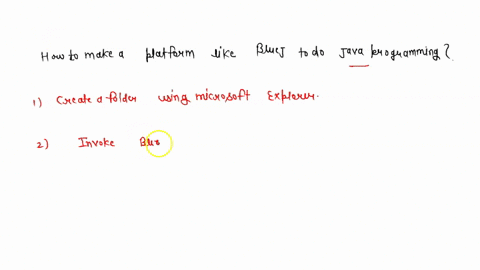 How to make a platform like BlueJ to do Java programming?
1) Create a folder using microsoft Explorer.
2) Invoke Blue